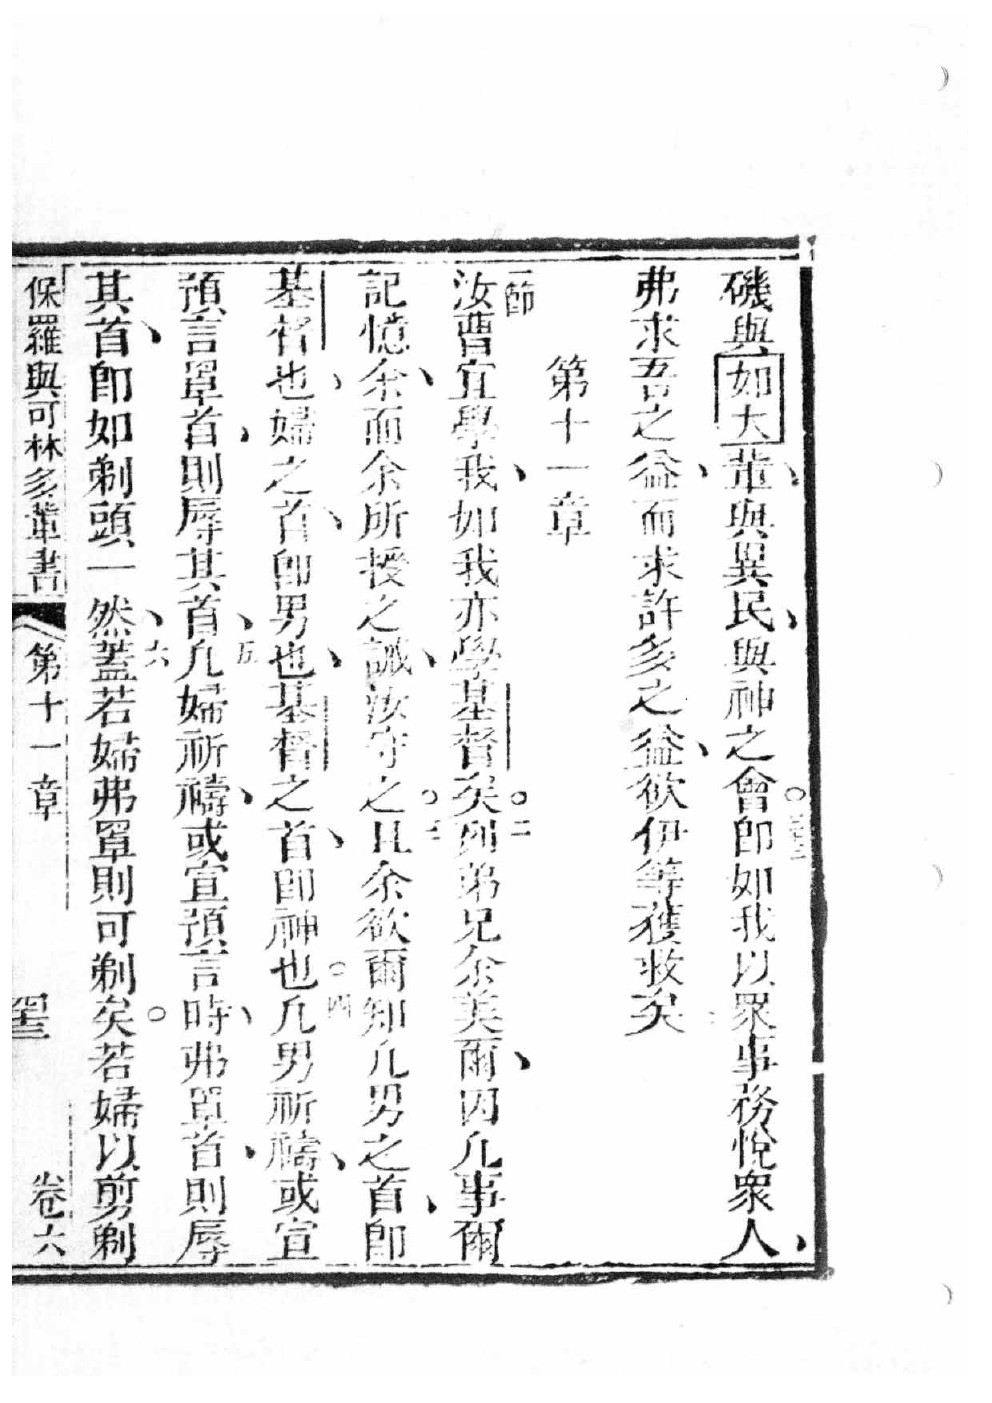 磯與如大輩與異民與神之會。三三即如我以眾事務悅眾人
弗求吾之益而求許多之益欲伊等獲救矣
第十一章
一節汝曹宜學我如我亦學基督矣。二列弟兄余美爾因凡事爾
記憶余而余所授之誡汝守之。三且余欲爾知凡男之首即
基督也婦之首即男也基督之首即神也。四凡男祈禱或宣
預言罩首則辱其首五凡婦祈禱或宣預言時弗罩首則辱
其首即如剃頭一然六蓋若婦弗罩則可剃矣。若婦以剪剃
保羅與可林多輩書 第十一章 卷六